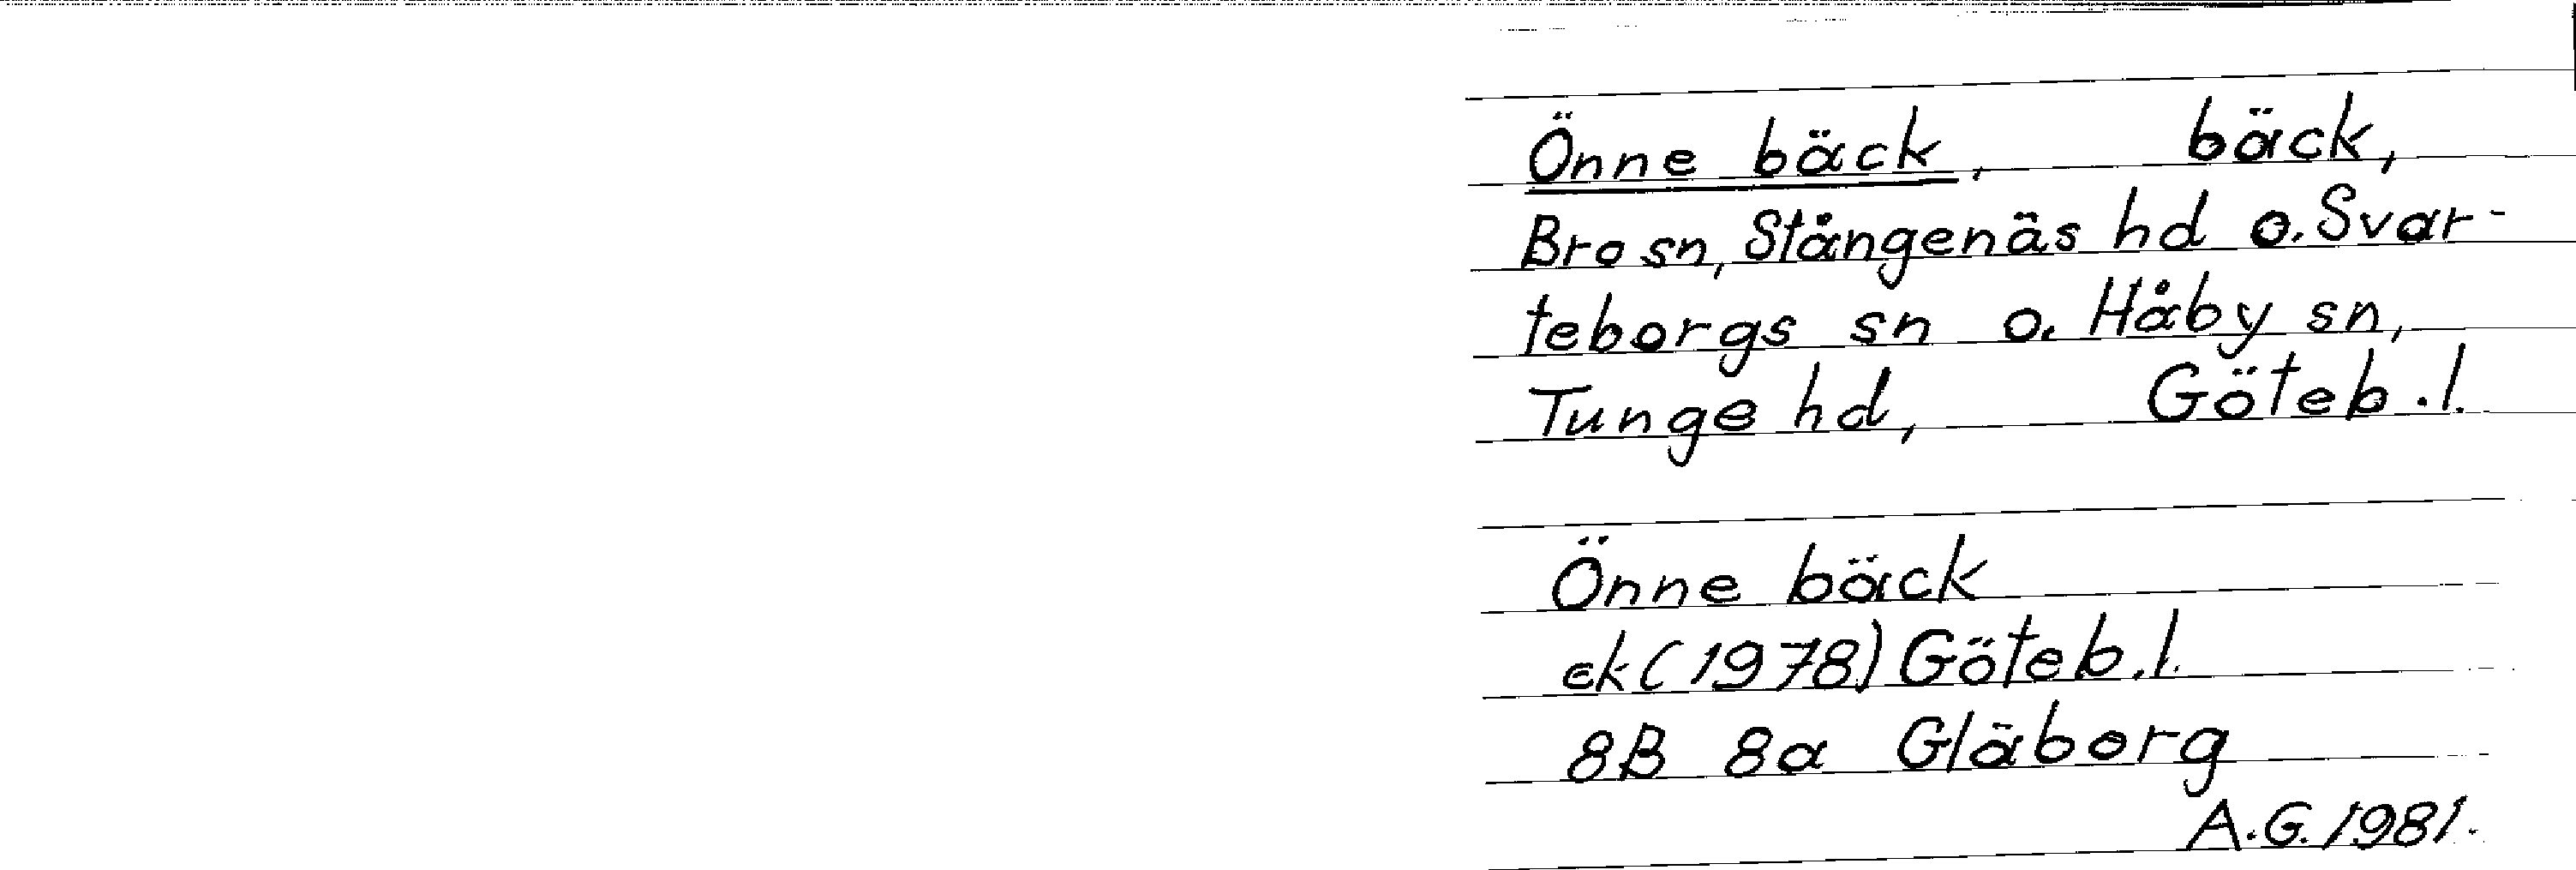 Önne bäck, bäck,
Bro sn, Stångenäs hd o. Svar-
teborgs sn o. Håby sn,
Tunge hd, Göteb.l.
Önne bäck
ek (1978) Göteb.l.
8B 8a Gläborg
A.G. 1981.